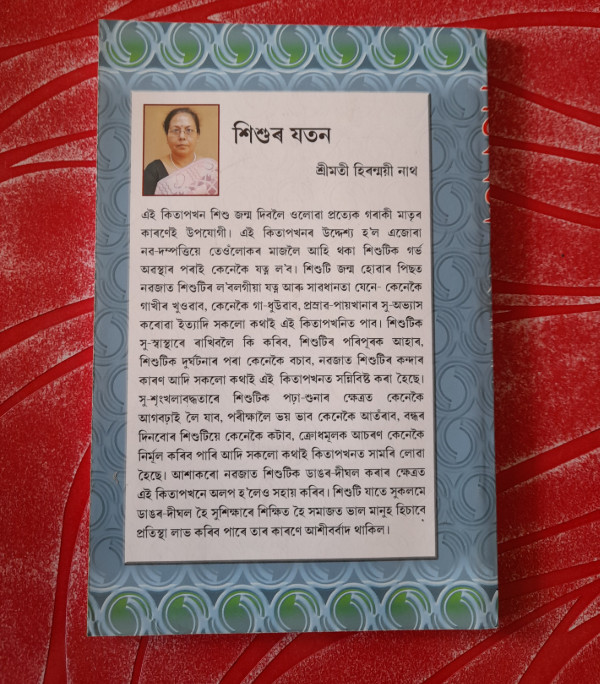 শিশুৰ যতন
শ্ৰীমতী হিৰন্ময়ী নাথ
এই কিতাপখন শিশু জন্ম দিবলৈ ওলোৱা প্ৰত্যেক গৰাকী মাতৃৰ
কাৰণেই উপযোগী। এই কিতাপখনৰ উদ্দেশ্য হ'ল এজোৰা
নৱ-দম্পত্তিয়ে তেওঁলোকৰ মাজলৈ আহি থকা শিশুটিক গৰ্ভ
অৱস্থাৰ পৰাই কেনেকৈ যত্ন ল'ব। শিশুটি জন্ম হোৱাৰ পিছত
নৱজাত শিশুটিৰ ল'বলগীয়া যত্ন আৰু সাৱধানতা যেনে- কেনেকৈ
গাখীৰ খুওৱাব, কেনেকৈ গা-ধুউৱাব, প্ৰস্ৰাৱ-পায়খানাৰ সু-অভ্যাস
কৰোৱা ইত্যাদি সকলো কথাই এই কিতাপখনিত পাব। শিশুটিক
সু-স্বাস্থ্যৰে ৰাখিবলৈ কি কৰিব, শিশুটিৰ পৰিপূৰক আহাৰ,
শিশুটিক দুৰ্ঘটনাৰ পৰা কেনেকৈ বচাব, নৱজাত শিশুটিৰ কন্দাৰ
কাৰণ আদি সকলো কথাই এই কিতাপখনত সন্নিবিষ্ট কৰা হৈছে।
সু-শৃংখলাবদ্ধতাৰে শিশুটিক পঢ়া-শুনাৰ ক্ষেত্ৰত কেনেকৈ
আগবঢ়াই লৈ যাব, পৰীক্ষালৈ ভয় ভাব কেনেকৈ আতঁৰাব, বন্ধৰ
দিনবোৰ শিশুটিয়ে কেনেকৈ কটাব, ক্ৰোধমূলক আচৰণ কেনেকৈ
নিৰ্মূল কৰিব পাৰি আদি সকলো কথাই কিতাপখনত সামৰি লোৱা
হৈছে। আশাকৰো নৱজাত শিশুটিক ডাঙৰ-দীঘল কৰাৰ ক্ষেত্ৰত
এই কিতাপখনে অলপ হ'লেও সহায় কৰিব। শিশুটি যাতে সুকলমে
ডাঙৰ-দীঘল হৈ সুশিক্ষাৰে শিক্ষিত হৈ সমাজত ভাল মানুহ হিচাবে
প্ৰতিস্থা লাভ কৰিব পাৰে তাৰ কাৰণে আশীৰ্বৰ্বাদ থাকিল।